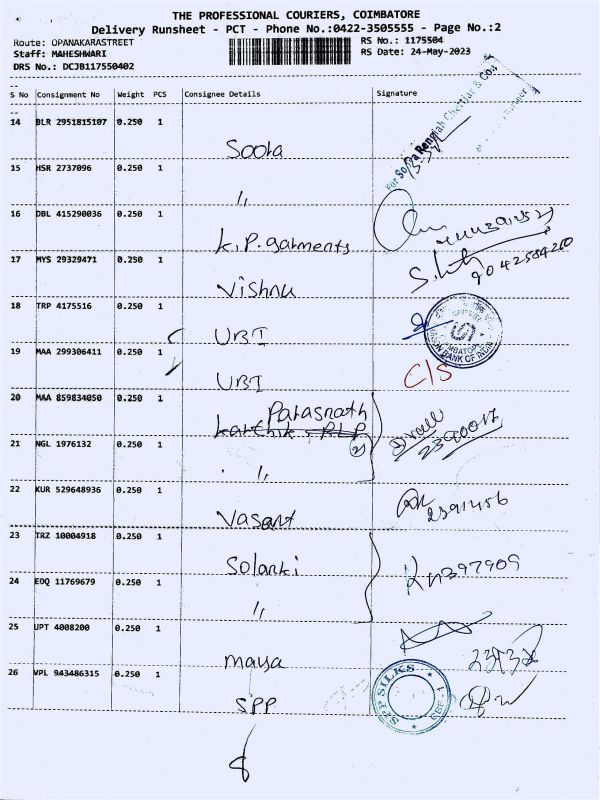 THE PROFESSIONAL COURIERS, COIMBATORE
Delivery Runsheet - PCT - Phone No.:0422-3505555 - Page No.:2
Route: OPANAKARASTREET
RS No.: 1175504
Staff: MAHESHWARI
RS Date: 24-May-2023
DRS No.: DCJB117550402
--
S No Consignment No Weight PCS Consignee Details Signature
--
For Rengiah Chettiar & Co.,
14 BLR 2951815107 0.250 1
Soora
15 HSR 2737096 0.250 1
"
16 DBL 415290036 0.250 1
K.P. garments
17 MYS 29329471 0.250 1
Vishnu
9042584210
18 TRP 4175516 0.250 1
UBI
19 MAA 299306411 0.250 1
UBI
C/S
20 MAA 859834050 1
Parasnath
Karthik, RLP
(2)
2390017
21 NGL 1976132 0.250 1
"
22 KUR 529648936 0.250 1
Vasant
2391456
23 TRZ 10004918 0.250 1
Solanki
24 EOQ 11769679 0.250 1
"
25 UPT 4008200 0.250 1
maya
26 VPL 943486315 0.250 1
SPP
SPP SILKS
CBE-1